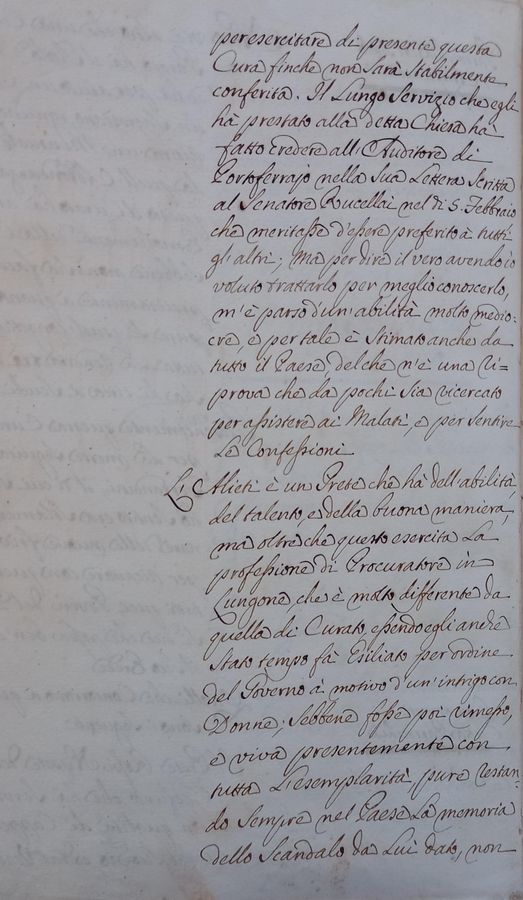 per esercitare di presente questa
Cura finche non sarà stabilmente
conferita. Il Lungo Servizio che egli
hà prestato alla detta Chiesa hà
fatto credere all'Auditore di
Portoferrajo nella sua Lettera scritta
al Senatore Rucellai nel dì 5. Febbraio
che meritasse d'essere preferito à tutti
gl'altri; Ma per dire il vero avendo io
voluto trattarlo per meglio conoscerlo,
m'è parso d'un abilità molto medio-
cre, e per tale è Stimato anche da
tutto il Paese, del che n'è una ri=
prova che da pochi sia ricercato
per assistere ai Malati, e per sentire
Le Confessioni
L'Alieti è un Prete che hà dell'abilità,
del talento, e della buona maniera,
ma oltre che questo esercita La
professione di Procuratore in
Lungone, che è molto differente da
quella di Curato, essendo egli anche
Stato tempo fà Esiliato per ordine
del Governo à motivo d'un intrigo con
Donne; Sebbene fosse poi rimesso,
e viva presentemente con
tutta L'esemplarità, pure restan-
do sempre nel Paese La memoria
dello Scandalo da Lui dato, non